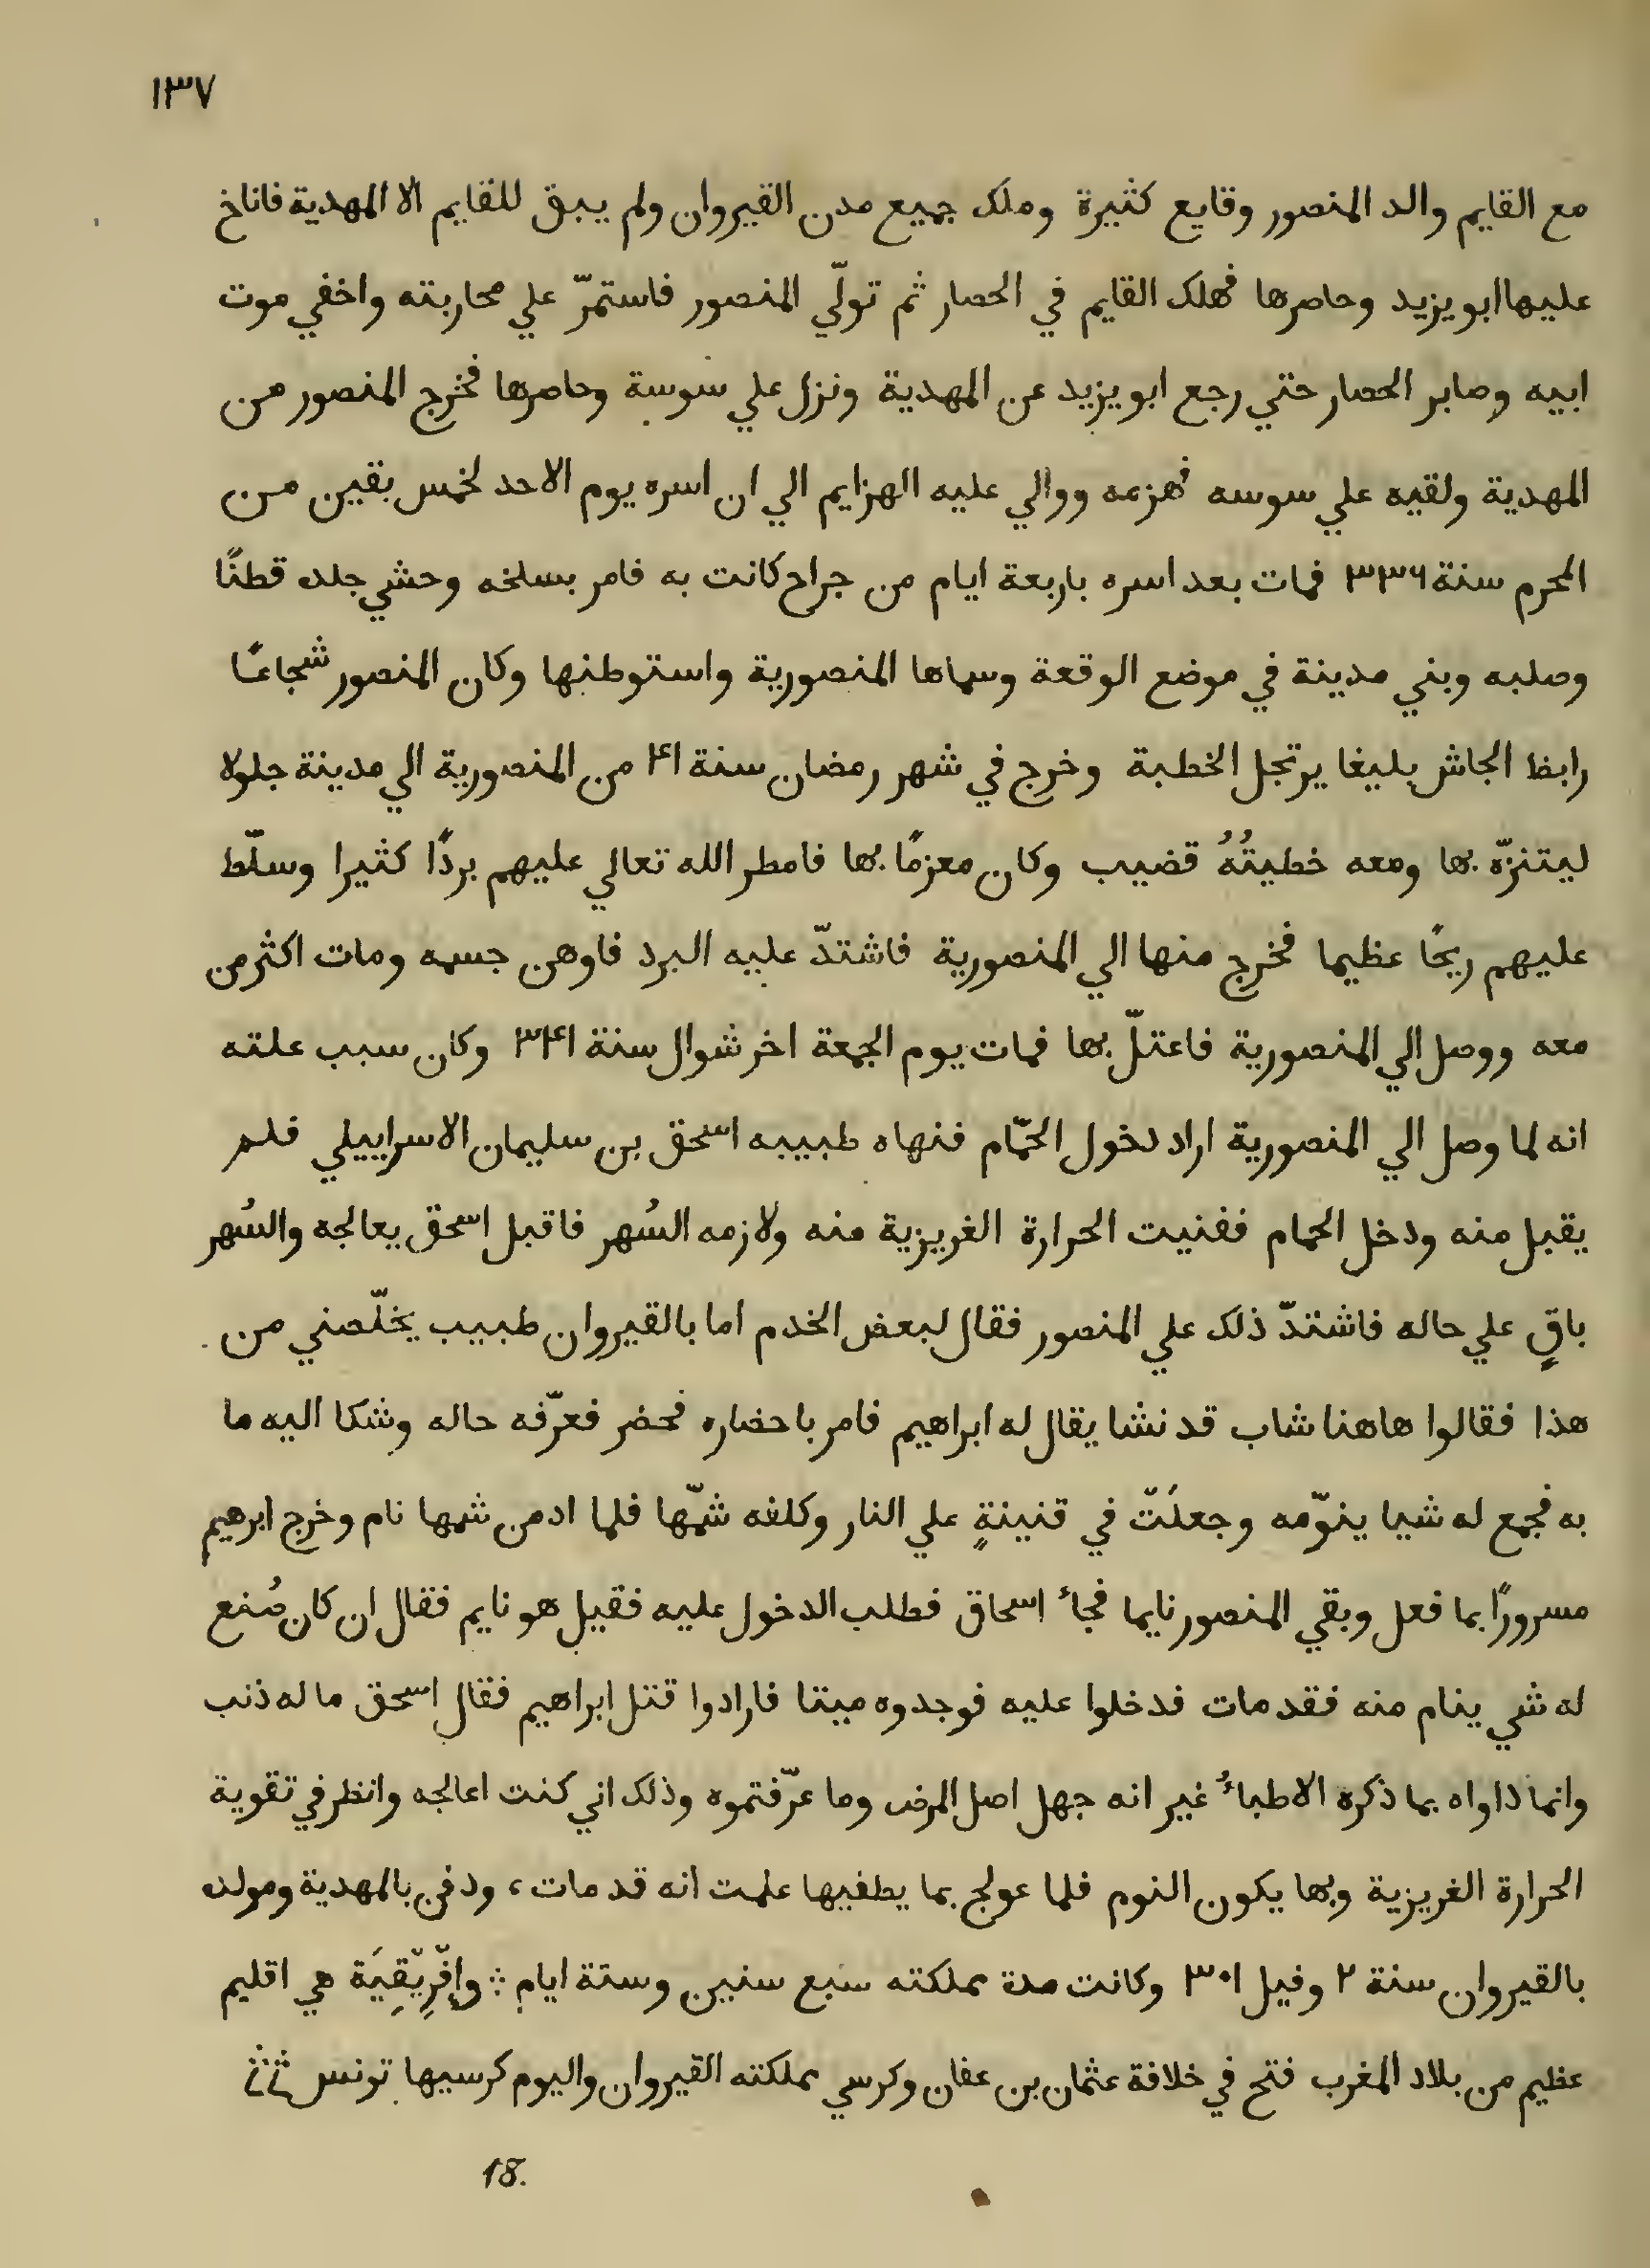 ١٣٧
مع القايم والد المنصور وقايع كثيرة وملك جميع مدن القيروان ولم يبق للقايم الا المهدية فاناخ
عليها ابو يزيد وحاصرها فهلك القايم في الحصار ثم تولّي المنصور فاستمرّ علي محاربته واخفي موت
ابيه وصابر الحصار حتي رجع ابو يزيد عن المهدية ونزل علي سوسة وحاصرها فخرج المنصور من
المهدية ولقيه علي سوسه فهزمه ووالي عليه الهزايم الي ان اسره يوم الاحد لخمس بقين من
المحرم سنة ٣٣٦ فمات بعد اسره باربعة ايام من جراح كانت به فامر بسلخه وحشي جلده قطنًا
وصلبه وبني مدينة في موضع الوقعة وسماها المنصورية واستوطنها وكان المنصور شجاعًا
رابظ الجاش بليغا يرتجل الخطبة وخرج في شهر رمضان سنة ٤١ من المنصورية الي مدينة جلولا
ليتنزّه بها ومعه خطيتُهُ قضيب وكان معزمًا بها فامطر الله تعالي عليهم بردًا كثيرا وسلّط
عليهم ريحًا عظيما فخرج منها الي المنصورية فاشتدّ عليه البرد فاوهن جسمه ومات اكثر من
معه ووصل الي المنصورية فاعتلّ بها فمات يوم الجمعة اخر شوال سنة ٣٤١ وكان سبب علته
انه لما وصل الي المنصورية اراد دخول الحمّام فنهاه طبيبه اسحق بن سليمان الاسراييلي فلم
يقبل منه ودخل الحمام ففنيت الحرارة الغريزية منه ولازمه السُهر فاقبل اسحق يعالجه والسُهر
باقٍ علي حاله فاشتدّ ذلك علي المنصور فقال لبعض الخدم اما بالقيروان طبيب يخلّصني من
هذا فقالوا هاهنا شاب قد نشا يقال له ابراهيم فامر باحضاره فحضر فعرّفه حاله وشكا اليه ما
به فجمع له شيا ينوّمه وجعلَتّ في قنينةٍ علي النار وكلفه شمّها فلما ادمن شمها نام وخرج ابرهيم
مسرورًا بما فعل وبقي المنصور نايما فجاء اسحاق فطلب الدخول عليه فقيل هو نايم فقال ان كان صُنع
له شي ينام منه فقد مات فدخلوا عليه فوجدوه ميتا فارادوا قتل ابراهيم فقال اسحق ما له ذنب
وانما داواه بما ذكره الاطباءُ غير انه جهل اصل المرض وما عرّفتموه وذلك اني كنت اعالجه وانظر في تقوية
الحرارة الغريزية وبها يكون النوم فلما عولج بما يطفيها علمت انه قد مات، ودفن بالمهدية ومولده
بالقيروان سنة ٢ وفيل ٣٠١ وكانت مدة مملكته سبع سنين وستة ايام ؞ وإفّرِيّقِيَة هي اقليم
عظيم من بلاد المغرب فتح في خلافة عثمان بن عفان وكرسي مملكته القيروان واليوم كرسيها تونس
18.